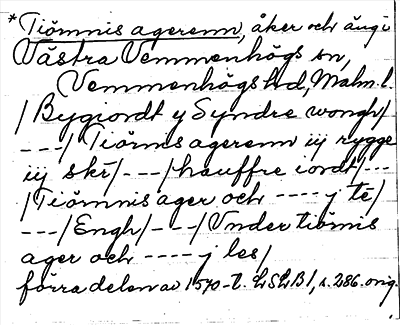 *Tiömnis agerenn, åker och äng i
Västra Vemmenhögs sn,
Vemmenhögs hd, Malm. l.
/Bygiordt y Syndre wongh/
---/Tiömis agerenn iij rygge
iij skr/---/hauffre iordt/---
/Tiömnis ager och ---- j te/
---/Engh/---/Vnder tiömis
ager och ---- j les/
förra delen av 1570-t. LSLB1, s. 286. orig.